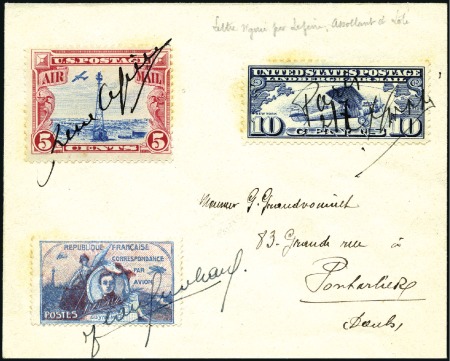 Lettre signée par Lefèvre, Assollant et Lotti
U.S. POSTAGE
AIR MAIL
5 CENTS 5
UNITED STATES POSTAGE
LINDBERGH AIR MAIL
10 CENTS 10
Monsieur G. Grandvoinnet
83 Grande rue à
Pontarlier
Doubs
REPUBLIQUE FRANÇAISE
CORRESPONDANCE
PAR
AVION
POSTES